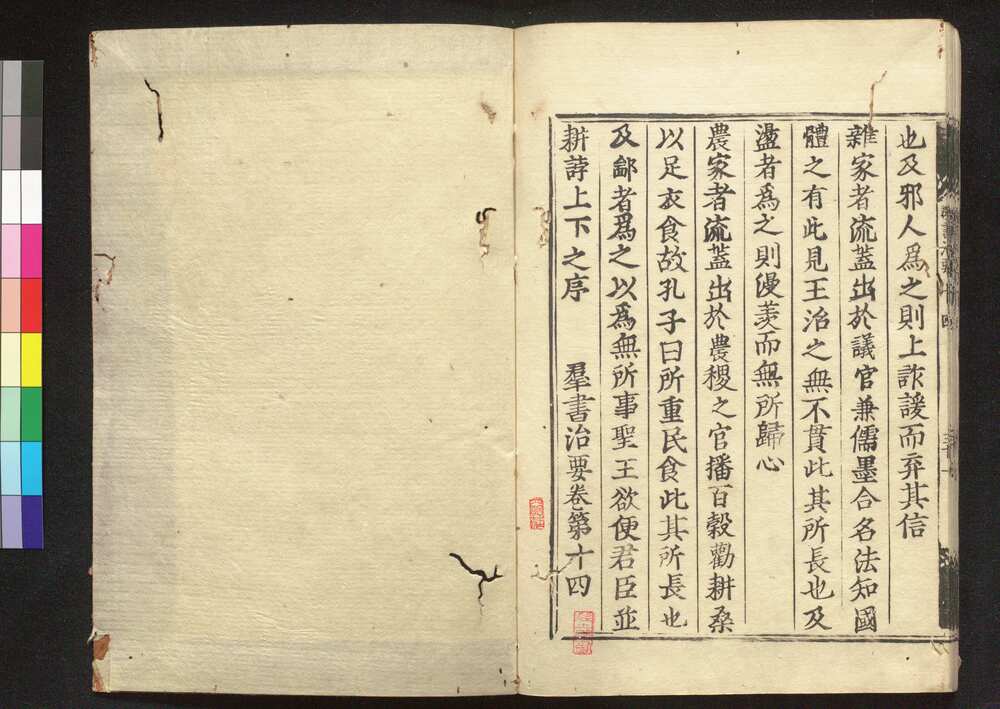 也及邪人爲之則上詐諼而弃其信
雜家者流蓋出於議官兼儒墨合名法知國
體之有此見王治之無不貫此其所長也及
盪者爲之則漫羨而無所歸心
農家者流蓋出於農稷之官播百穀勸耕桑
以足衣食故孔子曰所重民食此其所長也
及鄙者爲之以爲無所事聖王欲便君臣並
耕誖上下之序　羣書治要卷第十四